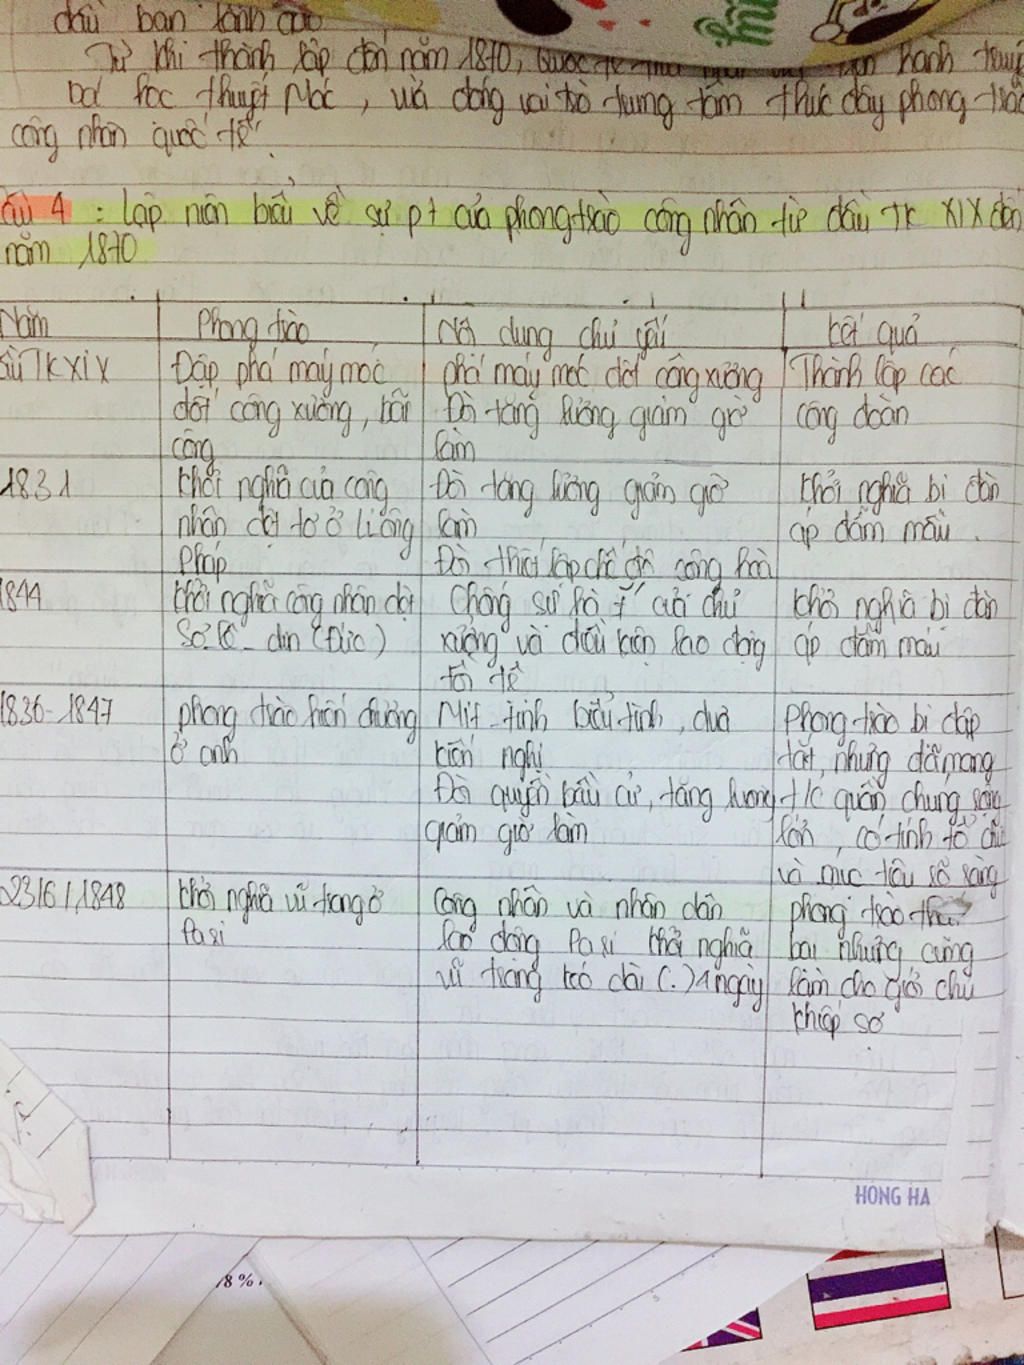 đấu ban lãnh đạo
Từ khi thành lập đến năm 1870, Quốc tế thứ hành truyền
bá học thuyết Mác, và đóng vai trò trung tâm thúc đẩy phong trào
công nhân quốc tế.
Câu 4 : Lập niên biểu về sự pt của phong trào công nhân từ đầu TK XIX đến
năm 1870
Năm Phong trào Nội dung chủ yếu Kết quả
TK XIX Đập phá máy móc phá máy móc đốt công xưởng Thành lập các
đốt công xưởng, bãi Đòi tăng lương giảm giờ công đoàn
công làm
1831 Khởi nghĩa của công Đòi tăng lương giảm giờ Khởi nghĩa bị đàn
nhân dệt tơ ở Li ông làm áp đẫm máu.
Pháp Đòi thiết lập chế độ cộng hoà
1844 Khởi nghĩa công nhân dệt Chống sự hà của chủ Khởi nghĩa bị đàn
Sơ-lê-din (Đức) xưởng và điều kiện lao động áp đẫm máu
tồi tệ
1836-1847 phong trào hiến chương Mít-tinh biểu tình, đưa Phong trào bị dập
ở anh kiến nghị tắt, nhưng đã mang
Đòi quyền bầu cử, tăng lương t/c quần chúng rộng
giảm giờ làm lớn, có tính tổ chức
và mục tiêu rõ ràng
23/6/1848 Khởi nghĩa vũ trang ở Công nhân và nhân dân phong trào thất
Pa ri lao động Pa ri khởi nghĩa bại nhưng cũng
vũ trang kéo dài (.) 4 ngày làm cho giới chủ
khiếp sợ
HONG HA
18%